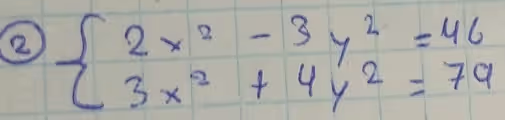 ② { 2x² - 3y² = 46
3x² + 4y² = 79